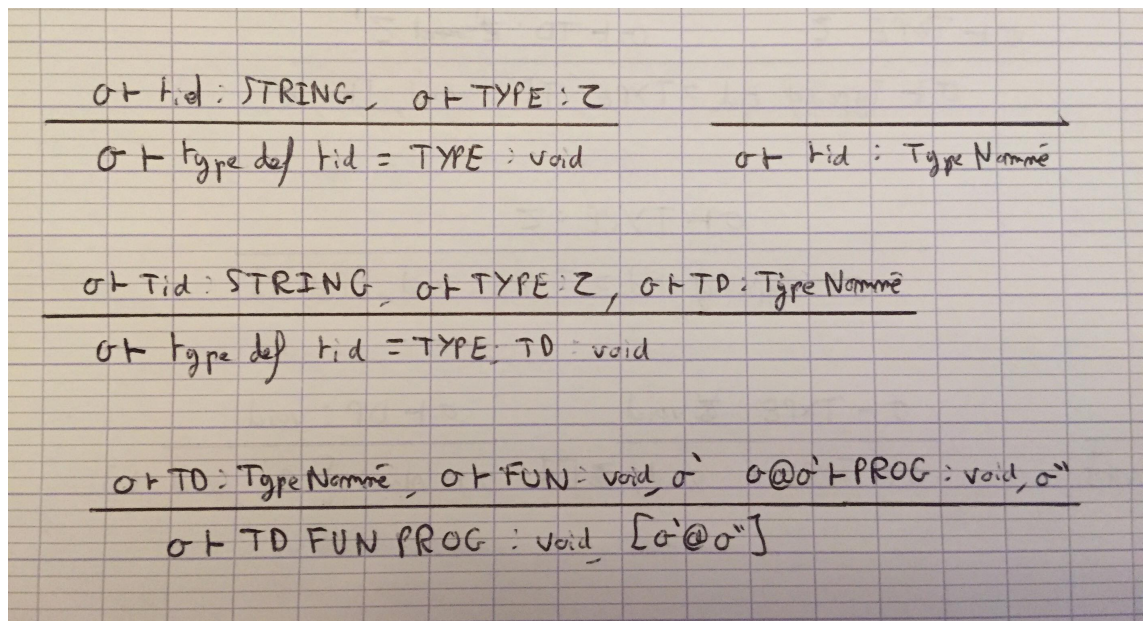 σ ⊢ tid : STRING, σ ⊢ TYPE : τ
σ ⊢ type def tid = TYPE : void
σ ⊢ tid : Type Nommé
σ ⊢ Tid : STRING, σ ⊢ TYPE : τ, σ ⊢ TD : Type Nommé
σ ⊢ type def tid = TYPE, TD : void
σ ⊢ TD : Type Nommé, σ ⊢ FUN : void, σ' σ@σ' ⊢ PROG : void, σ"
σ ⊢ TD FUN PROG : void, [σ'@σ"]